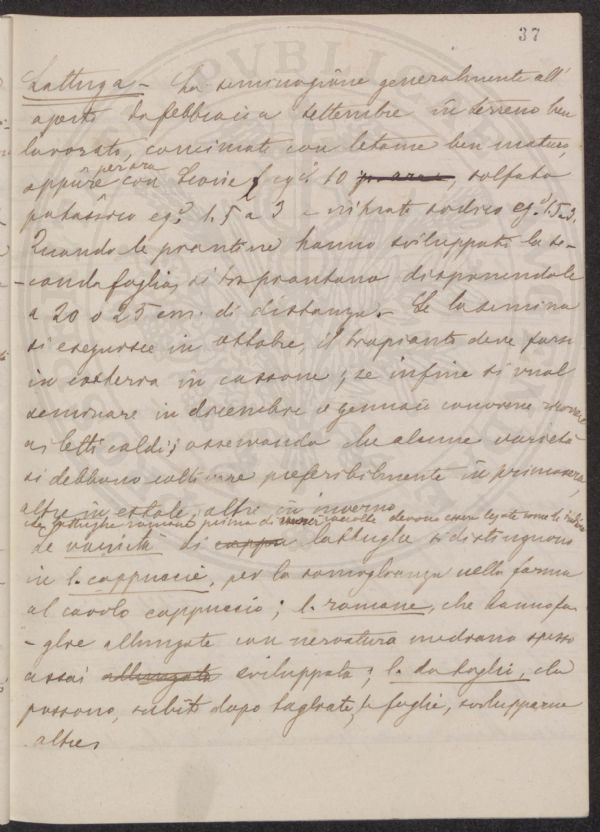 37
Lattuga - La seminagione generalmente all'
aperto da febbraio a settembre in terreno ben
lavorato, concimato con letame ben maturo,
per ara
oppure con Scorie kg.i 10 per ara, solfato
potassico kg.i 1.5 a 3 e nitrato sodico kg.i 1.5 a 3.
Quando le piantine hanno sviluppato la se-
-conda foglia, si trapiantano disponendole
a 20 o 25 cm. di distanza. - Se la semina
si eseguisce in ottobre, il trapianto deve farsi
in terra in cassone; se infine si vuol
seminare in dicembre e gennaio conviene
ai letti caldi; osservando che alcune varietà
si debbono coltivare preferibilmente in primavera,
altre in estate, altre in inverno.
Le lattughe romane prima di essere raccolte devono essere legate come le indivie
Le varietà di cappu lattughe si distinguono
in l. cappuccie, per la somiglianza nella forma
al cavolo cappuccio; l. romane, che hanno fo-
-glie allungate con nervatura mediana spesso
assai allungata sviluppata; l. da taglio, che
possono, subito dopo tagliate, le foglie, svilupparne
altre.